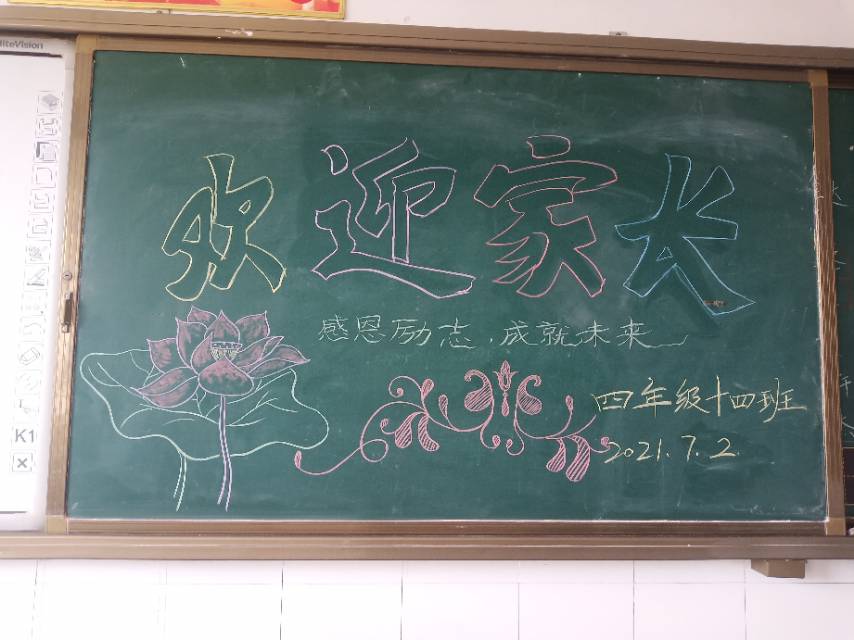 欢迎家长
感恩励志，成就未来
四年级十四班
2021.7.2
K1